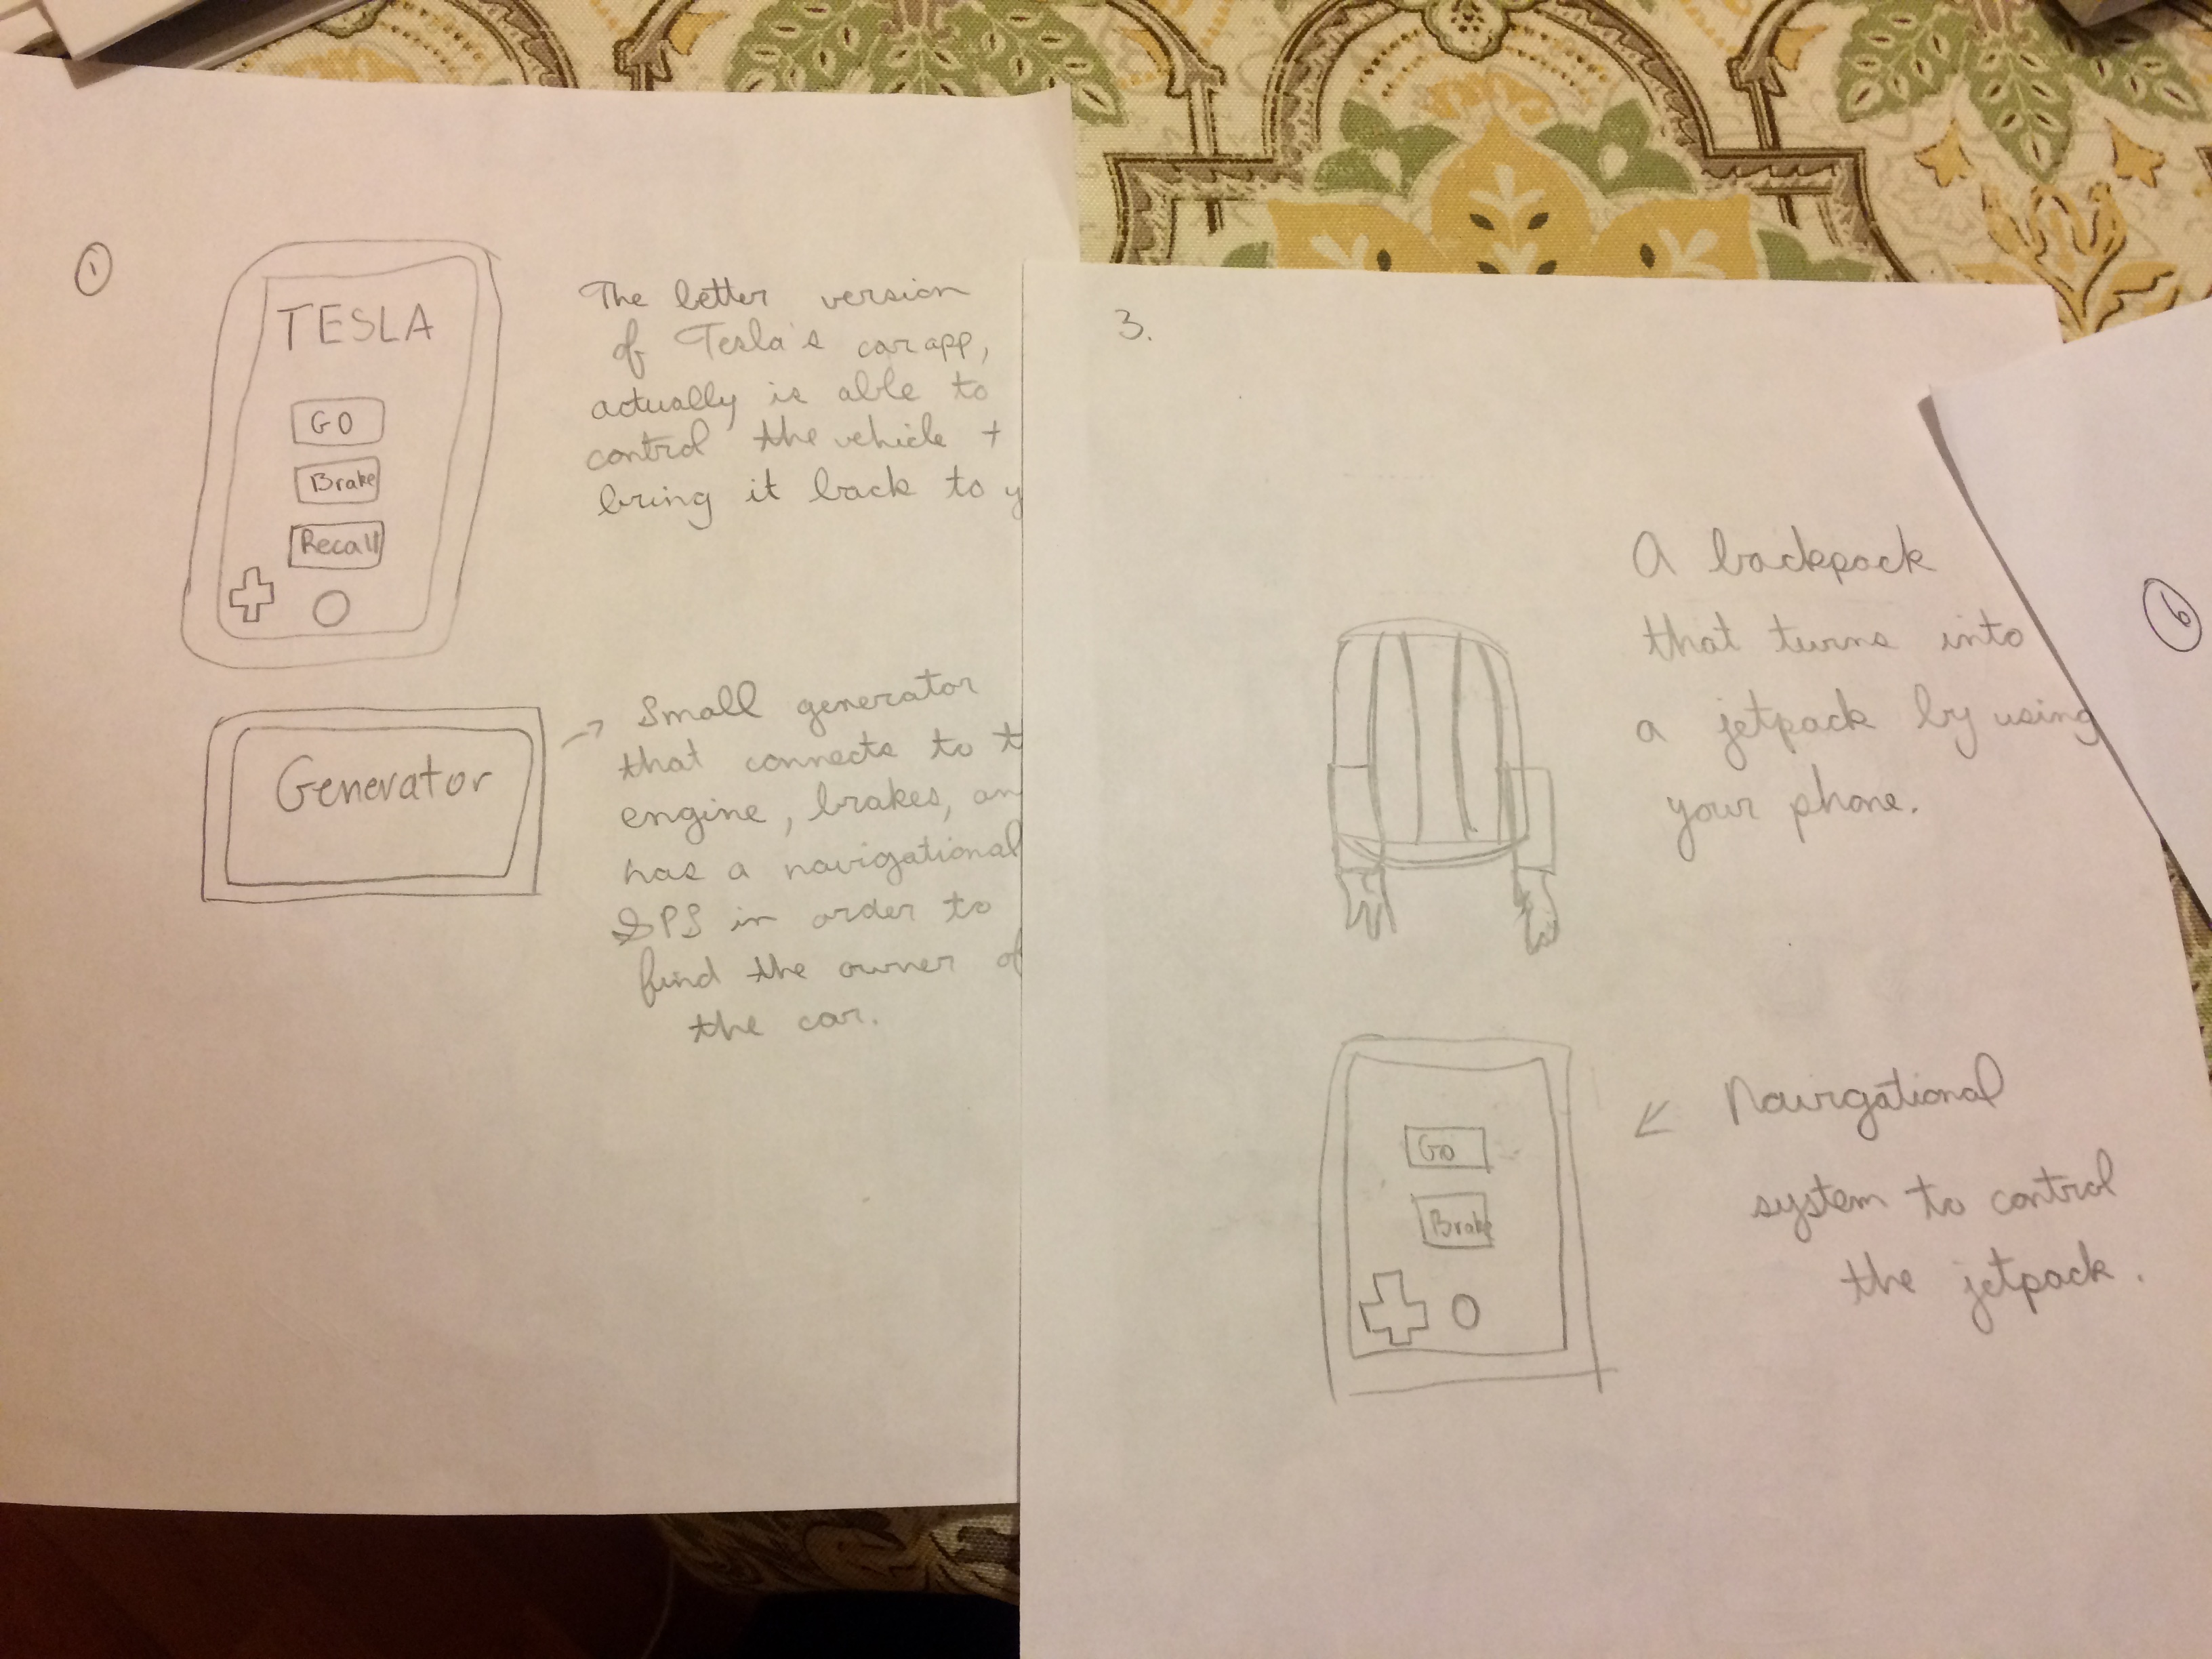 1
TESLA
GO
Brake
Recall
The better version
of Tesla's car app,
actually is able to
control the vehicle +
bring it back to y
Generator
Small generator
that connects to t
engine, brakes, an
has a navigational
GPS in order to
find the owner of
the car.
3.
A backpack
that turns into
a jetpack by using
your phone.
Go
Brake
Navigational
system to control
the jetpack.
6